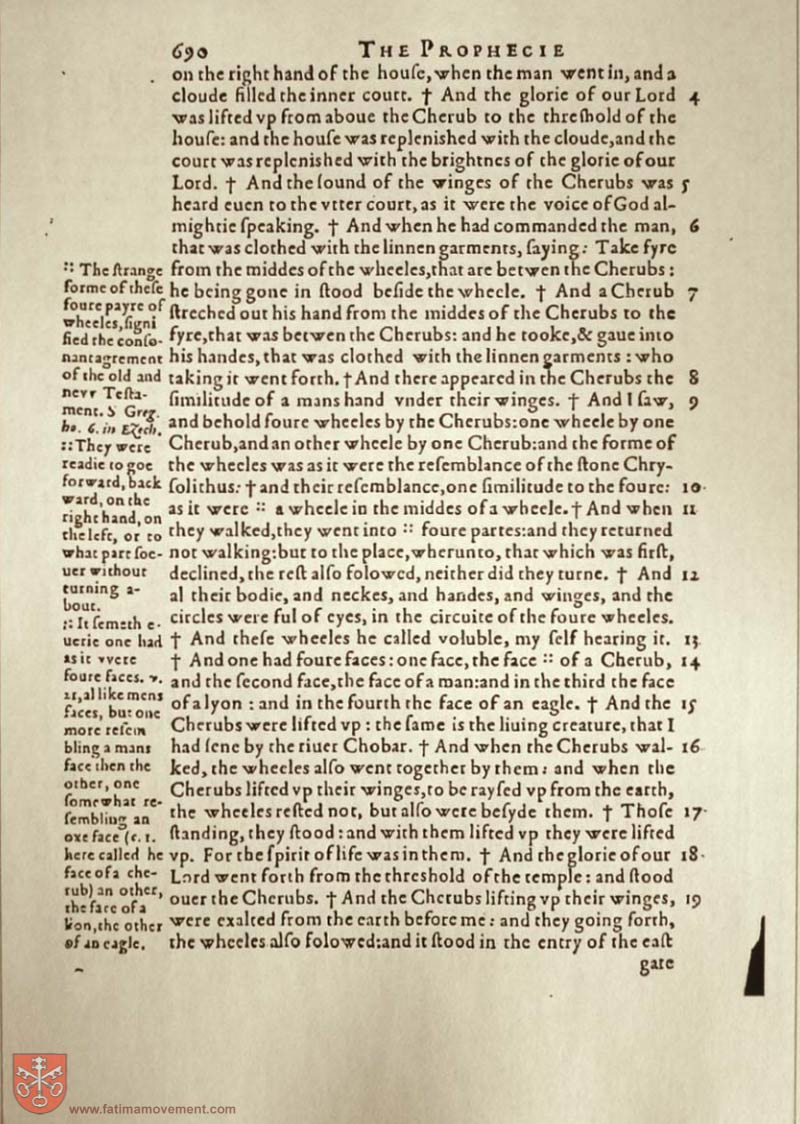 690 THE PROPHECIE
on the right hand of the houſe, when the man went in, and a
cloude filled the inner court. † And the glorie of our Lord 4
was lifted vp from aboue the Cherub to the threſhold of the
houſe: and the houſe was repleniſhed with the cloude, and the
court was repleniſhed with the brightnes of the glorie of our
Lord. † And the ſound of the winges of the Cherubs was 5
heard euen to the vtter court, as it were the voice of God al-
mightie ſpeaking. † And when he had commanded the man, 6
that was clothed with the linnen garments, ſaying: Take fyre
from the middes of the wheeles, that are betwen the Cherubs:
he being gone in ſtood beſide the wheele. † And a Cherub 7
ſtreched out his hand from the middes of the Cherubs to the
fyre, that was betwen the Cherubs: and he tooke, & gaue into
his handes, that was clothed with the linnen garments: who
taking it went forth. † And there appeared in the Cherubs the 8
ſimilitude of a mans hand vnder their winges. † And I ſaw, 9
and behold foure wheeles by the Cherubs: one wheele by one
Cherub, and an other wheele by one Cherub: and the forme of
the wheeles was as it were the reſemblance of the ſtone Chry-
ſolithus: † and their reſemblance, one ſimilitude to the foure: 10
as it were :: a wheele in the middes of a wheele. † And when 11
they walked, they went into :: foure partes: and they returned
not walking: but to the place, wherunto, that which was firſt,
declined, the reſt alſo folowed, neither did they turne. † And 12
al their bodie, and neckes, and handes, and winges, and the
circles were ful of eyes, in the circuite of the foure wheeles.
† And theſe wheeles he called voluble, my ſelf hearing it. 13
† And one had foure faces: one face, the face :: of a Cherub, 14
and the ſecond face, the face of a man: and in the third the face
of a lyon: and in the fourth the face of an eagle. † And the 15
Cherubs were lifted vp: the ſame is the liuing creature, that I
had ſene by the riuer Chobar. † And when the Cherubs wal- 16
ked, the wheeles alſo went together by them: and when the
Cherubs lifted vp their winges, to be rayſed vp from the earth,
the wheeles reſted not, but alſo were beſyde them. † Thoſe 17
ſtanding, they ſtood: and with them lifted vp they were lifted
vp. For the ſpirit of life was in them. † And the glorie of our 18
Lord went forth from the threſhold of the temple: and ſtood
ouer the Cherubs. † And the Cherubs lifting vp their winges, 19
were exalted from the earth before me: and they going forth,
the wheeles alſo folowed: and it ſtood in the entry of the eaſt
gate
:: The ſtrange
forme of theſe
foure payre of
wheeles, ſigni
fied the conſo-
nant agrement
of the old and
new Teſta-
ment. S Greg.
ho. 6. in Ezech.
:: They were
readie to goe
forward, back
ward, on the
right hand, on
the left, or to
what part ſoe-
uer without
turning a-
bout.
:: It ſemeth e-
uerie one had
as it were
foure faces. v.
21, al like mens
faces, but one
more reſem
bling a mans
face then the
other, one
ſomewhat re-
ſembling an
oxe face (c. 1.
here called he
face of a che-
rub) an other,
the face of a
lion, the other
of an eagle.
www.fatimamovement.com